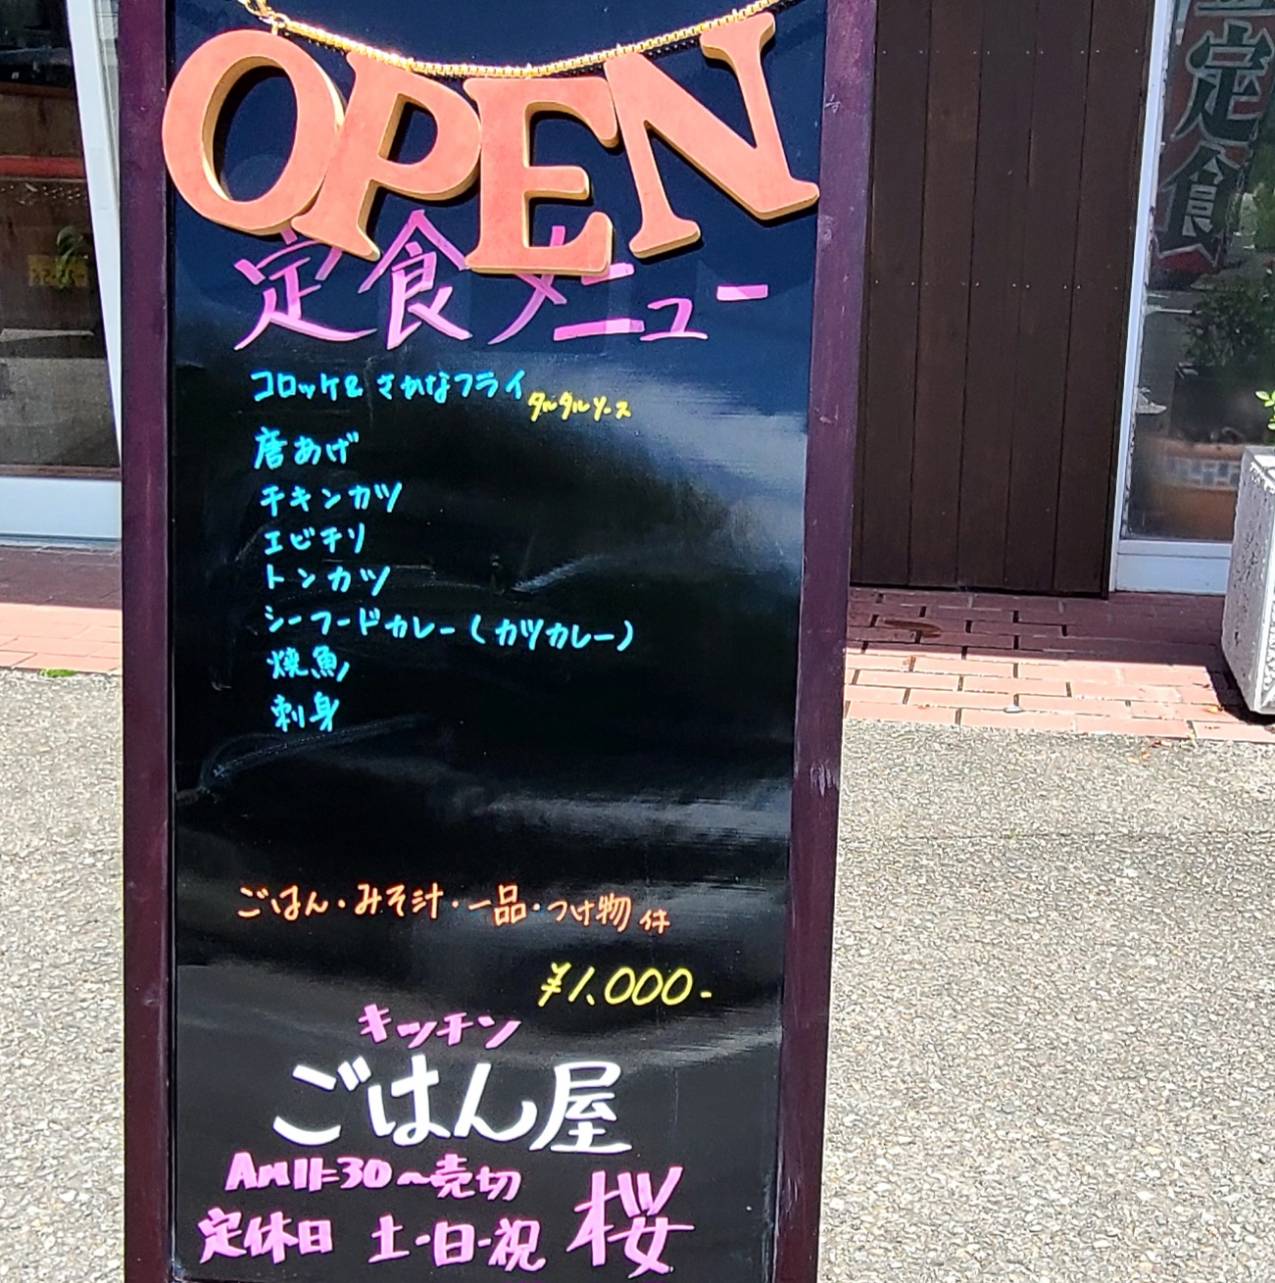 OPEN
定食メニュー
コロッケ&さかなフライ
タルタルソース
唐あげ
チキンカツ
エビチリ
トンカツ
シーフードカレー(カツカレー)
焼魚
刺身
ごはん・みそ汁・一品・つけ物 件
¥1,000-
キッチン
ごはん屋
AM11:30〜売切
桜
定休日 土・日・祝
定食